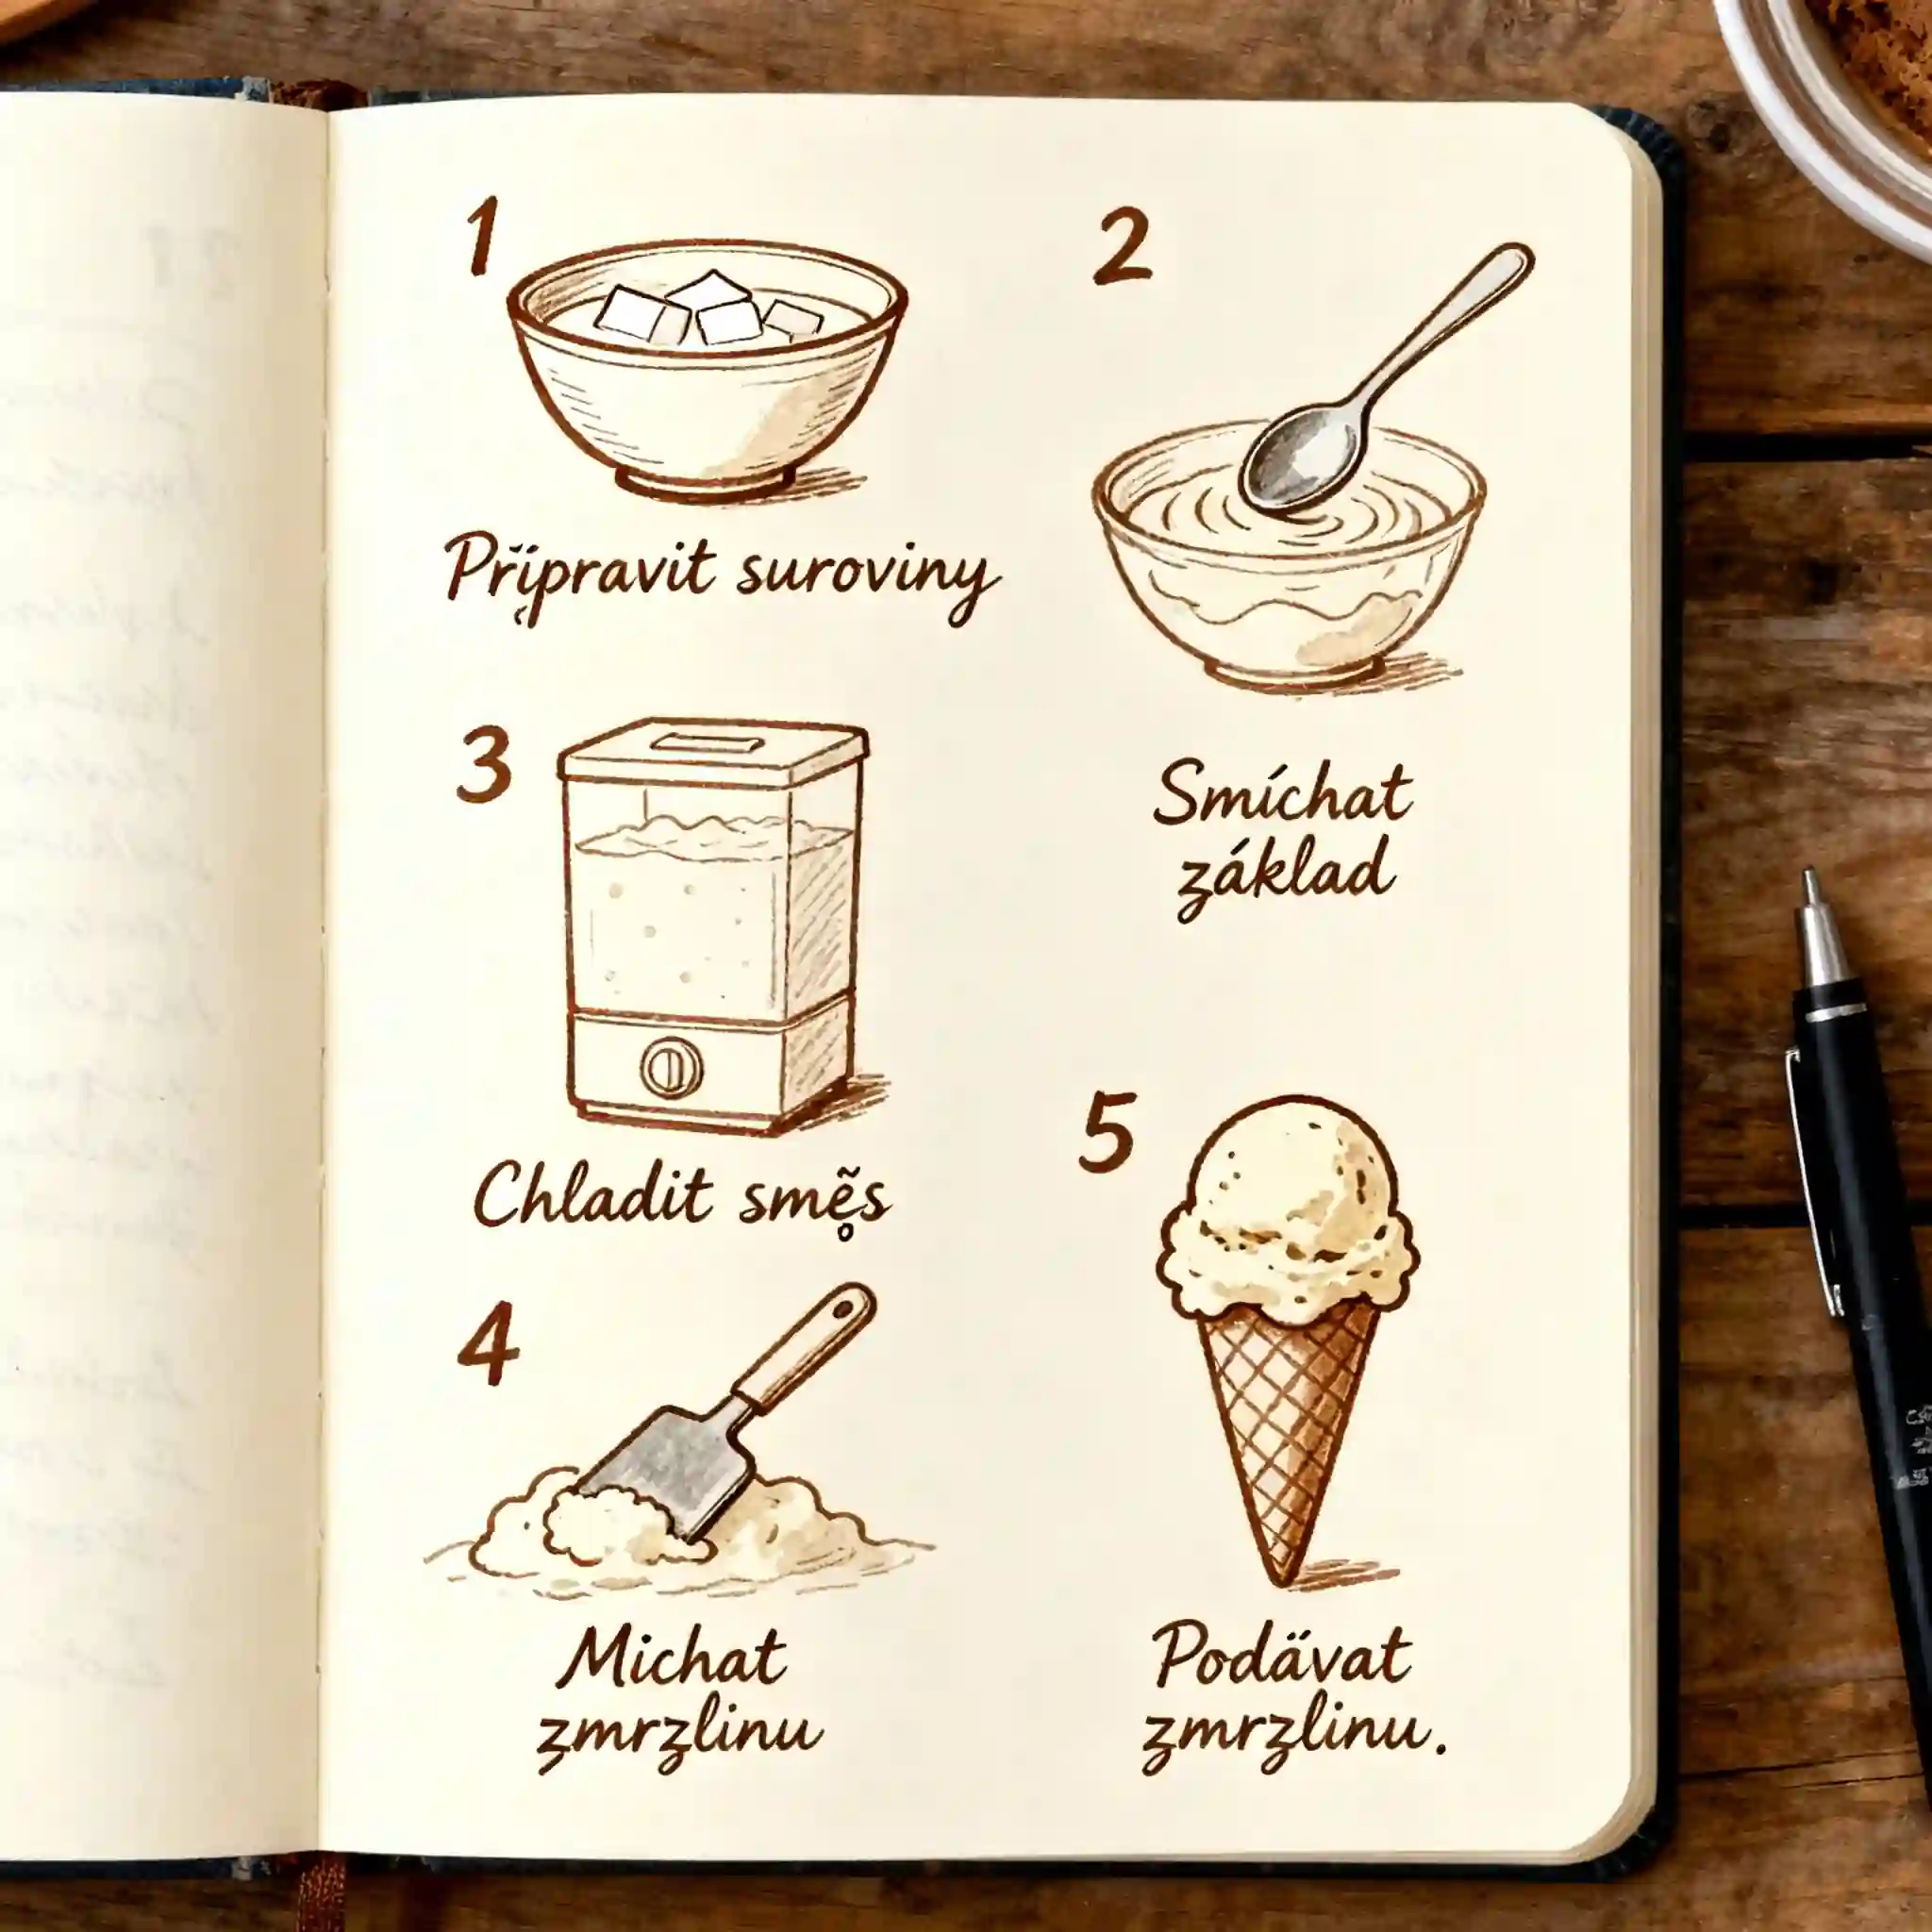 1
Připravit suroviny
2
Smíchat
základ
3
Chladit směs
4
Michat
zmrzlinu
5
Podävat
zmrzlinu.